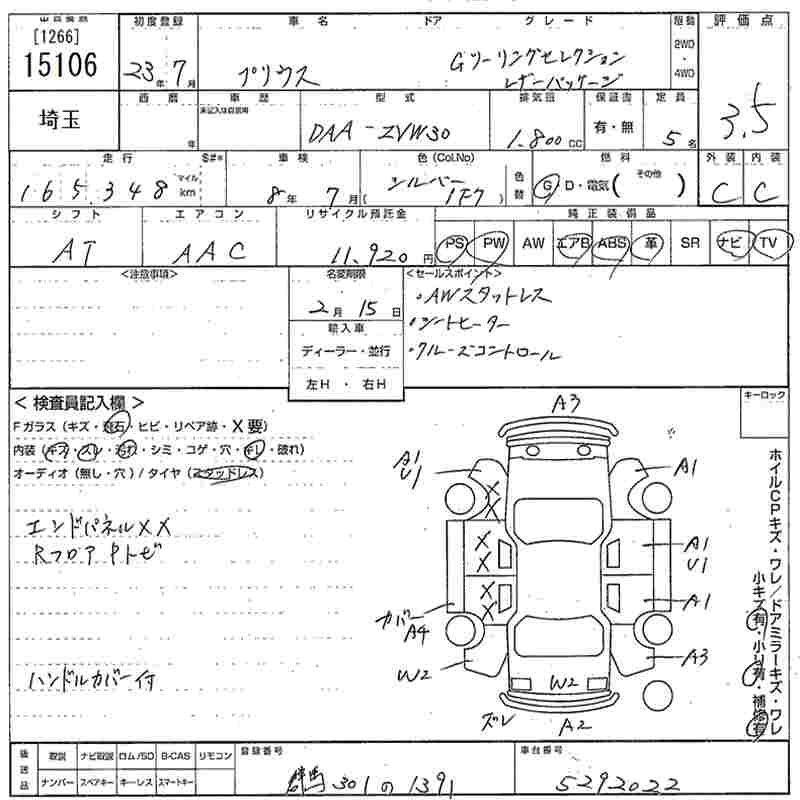 [1266]
15106
埼玉
初度登録
23年 7月
車名
プリウス
ドア
グレード
Gツーリングセレクション
レザーパッケージ
駆動
2WD
・
4WD
評価点
3.5
西暦
年
車歴
未記入は自家用
型式
DAA-ZVW30
排気量
1.800cc
保証書
有・無
定員
5名
走行
165.348
マイル
km
S#*
車検
8年 7月
色(Col.No)
シルバー
(1F7)
色替
燃料
G D・電気(その他)
外装
C
内装
C
シフト
AT
エアコン
AAC
リサイクル預託金
11.920円
純正装備品
PS PW AW エアB ABS 革 SR ナビ TV
<注意事項>
名変期限
2月 15日
輸入車
ディーラー・並行
左H・右H
<セールスポイント>
・AWスタットレス
・シートヒーター
・クルーズコントロール
<検査員記入欄>
Fガラス(キズ・飛石・ヒビ・リペア跡・X要)
内装(キズ・スリ・汚れ・シミ・コゲ・穴・キレ・破れ)
オーディオ(無し・穴)/タイヤ(スタッドレス)
エンドパネルXX
Rフロア Pトゼ
ハンドルカバー付
キーロック
A3
A1
U1
A1
X
X
X
X
A1
U1
X
X
A1
カバー
A4
W2
A3
W2
ズレ
A2
ホイルCPキズ・ワレ/ドアミラーキズ・ワレ
小キズ有・小U有・補修有
後送品
取説 ナビ取説 ロム/SD B-CAS リモコン
ナンバー スペアキー キーレス スマートキー
登録番号
群馬 301 の 1391
車台番号
5292022